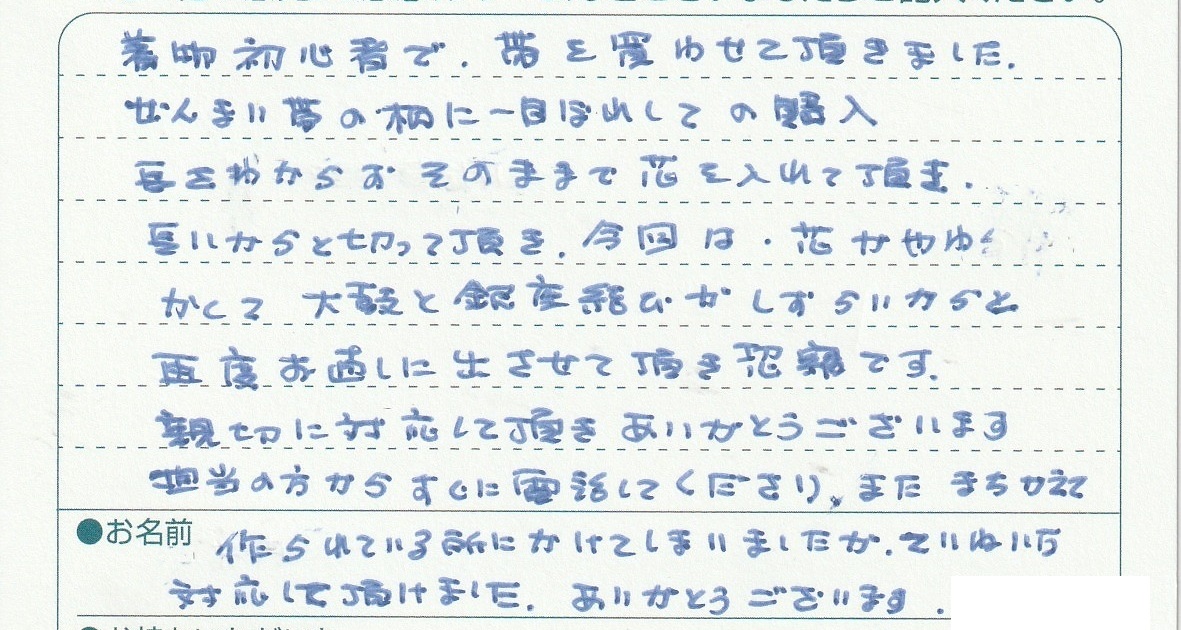 着物初心者で、帯を買わせて頂きました。
ぜんまい帯の柄に一目ぼれしての購入
長さわからずそのままで芯を入れて頂き、
長いからと切って頂き、今回は、芯がやわら
かくて太鼓と銀座結びがしずらいからと
再度お直しに出させて頂き恐縮です。
親切に対応して頂きありがとうございます
担当の方からすぐに電話してくださり、またまちがえて
●お名前
作られている所にかけてしまいましたが、ていねいな
対応して頂けました。ありがとうございます。